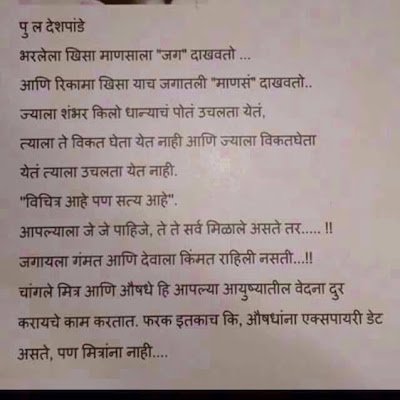 पु ल देशपांडे
भरलेला खिसा माणसाला "जग" दाखवतो ...
आणि रिकामा खिसा याच जगातली "माणसं" दाखवतो..
ज्याला शंभर किलो धान्याचं पोतं उचलता येतं,
त्याला ते विकत घेता येत नाही आणि ज्याला विकतघेता
येतं त्याला उचलता येत नाही.
"विचित्र आहे पण सत्य आहे".
आपल्याला जे जे पाहिजे, ते ते सर्व मिळाले असते तर..... !!
जगायला गंमत आणि देवाला किंमत राहिली नसती...!!
चांगले मित्र आणि औषधे हि आपल्या आयुष्यातील वेदना दुर
करायचे काम करतात. फरक इतकाच कि, औषधांना एक्सपायरी डेट
असते, पण मित्रांना नाही....